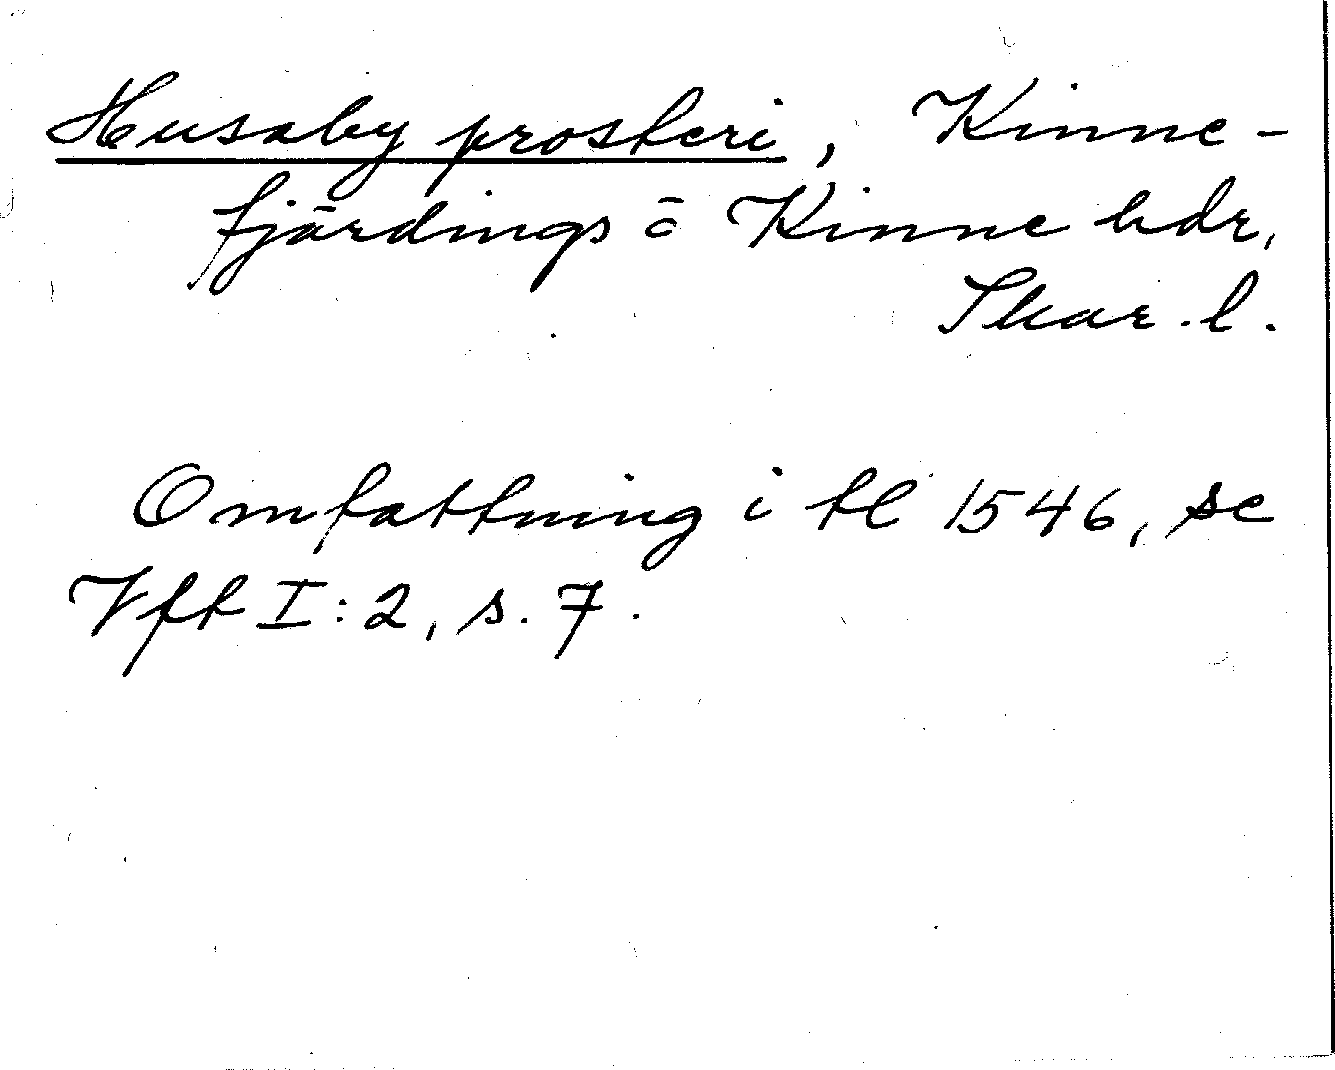 Husaby prosteri, Kinne-
fjärdings o Kinne hdr,
Skar. l.
Omfattning i tl 1546, se
Vft I:2, s. 7.